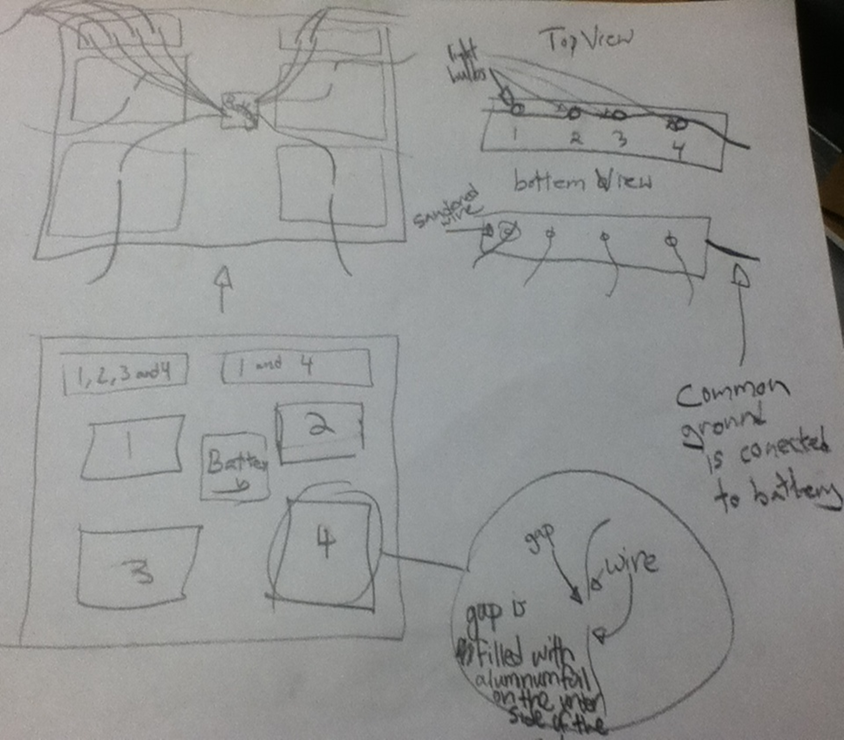 Top View
light
bulbs
1 2 3 4
bottem View
wire
Common
ground
is conected
to battery
1, 2, 3 and 4
1 and 4
1
2
Battery
3
4
gap
wire
gap is
filled with
alumnumfoil
on the under
side of the